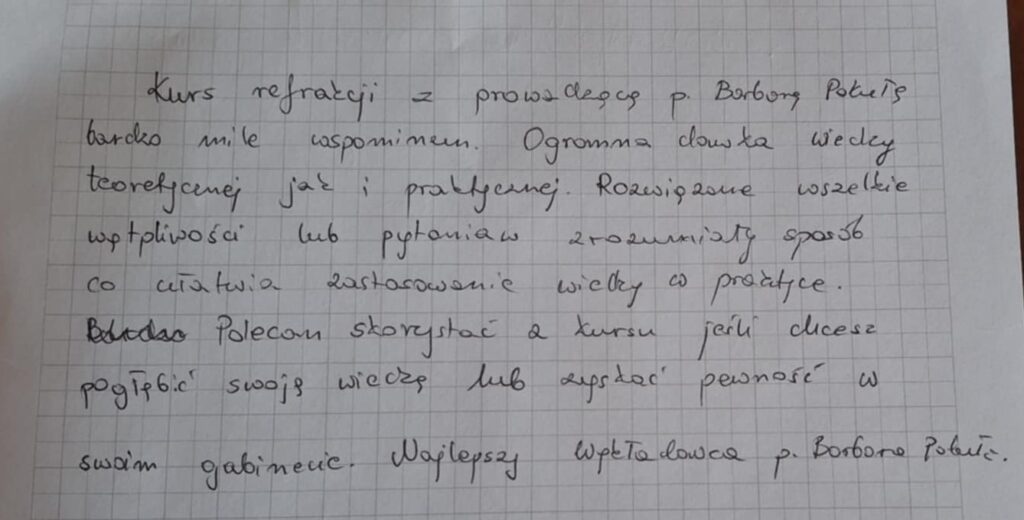 Kurs refrakcji z prowadzącą p. Barbarą Pakułą
bardzo mile wspominam. Ogromna dawka wiedzy
teoretycznej jak i praktycznej. Rozwiązane wszelkie
wątpliwości lub pytania w zrozumiały sposób
co ułatwia zastosowanie wiedzy w praktyce.
Polecam skorystać z kursu jeśli chcesz
pogłębić swoją wiedzę lub zyskać pewność w
swoim gabinecie. Najlepszy wykładowca p. Barbara